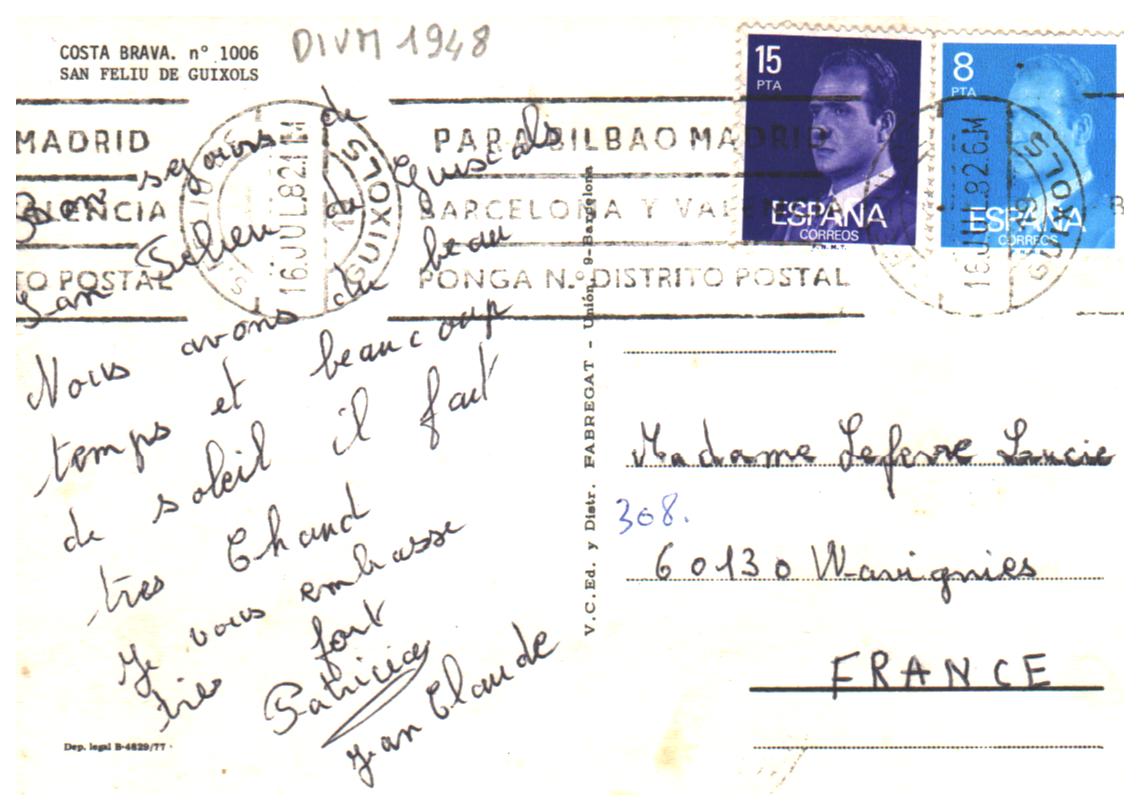 COSTA BRAVA. nº 1006
SAN FELIU DE GUIXOLS
DIVM 1948
MADRID
PARA BILBAO MADRID
BARCELONA Y VALENCIA
TO POSTAL
PONGA N.º DISTRITO POSTAL
16.JUL.82.1M
GUIXOLS
15
PTA
ESPAÑA
CORREOS
F.N.M.T.
8
PTA
ESPAÑA
CORREOS
16.JUL.82.6M
GUIXOLS
Bon sejours de
San Felieu de Guiscols
Nous avons du beau
temps et beaucoup
de soleil il fait
tres Chaud
Je vous embrasse
tres fort
Patricia
Jean Claude
V.C. Ed. y Distr. FABREGAT - Unión, 9-Barcelona
Madame Lefevre Lucie
308.
60130 Wavignies
FRANCE
Dep. legal B-4829/77